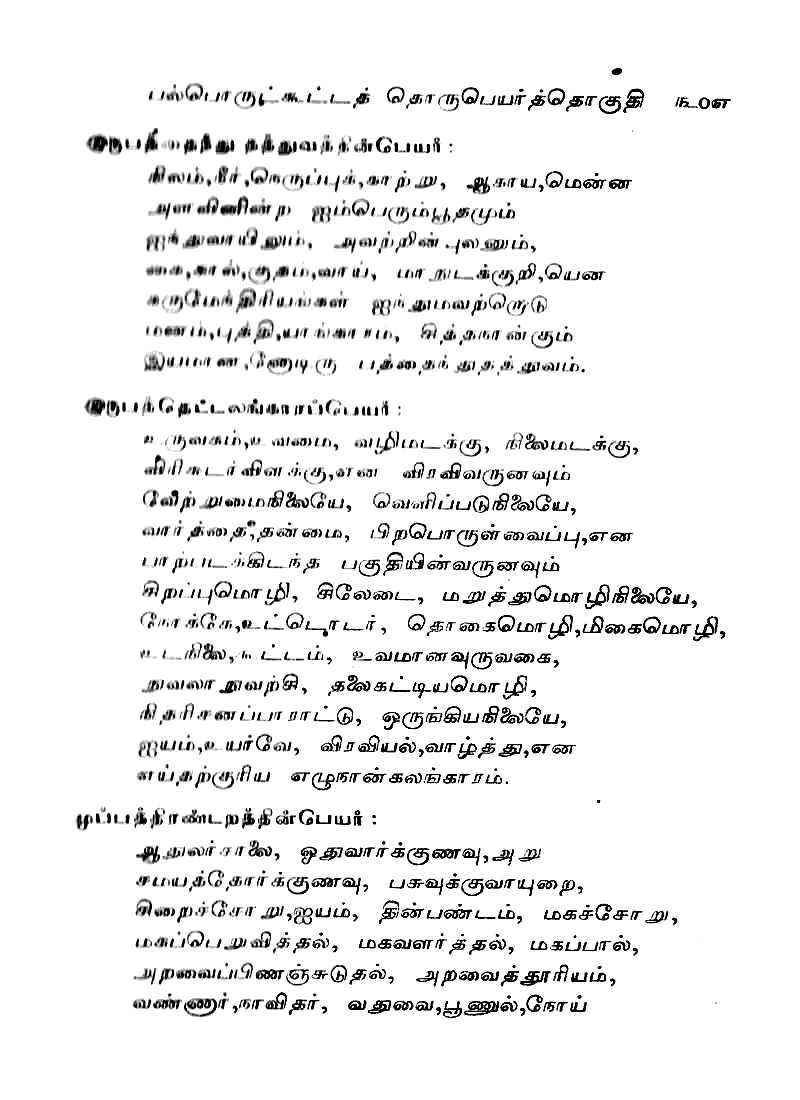 பல்பொருட்கூட்டத் தொருபெயர்த்தொகுதி ௩௦௭
இருபத்தைந்து தத்துவத்தின்பெயர் :
நிலம்,நீர்,நெருப்புக்,காற்று, ஆகாய,மென்ன
அளவினின்ற ஐம்பெரும்பூதமும்
ஐந்துவாயிலும், அவற்றின் புலனும்,
கை,கால்,குதம்,வாய், மாநுடக்குறி,யென
கருமேந்திரியங்கள் ஐந்துமவற்றொடு
மனம்,புத்தி,யாங்காரம, சித்தநான்கும்
இயமான,னோடிரு பத்தைந்துதத்துவம்.
இருபத்தெட்டலங்காரப்பெயர் :
உருவகம்,உவமை, வழிமடக்கு, நிலைமடக்கு,
விரிசுடர்விளக்கு,என விரவிவருனவும்
வேற்றுமைநிலையே, வெளிப்படுநிலையே,
வார்த்தை,தன்மை, பிறபொருள்வைப்பு,என
பாற்படக்கிடந்த பகுதியின்வருனவும்
சிறப்புமொழி, சிலேடை, மறுத்துமொழிநிலையே,
நோக்கே,உட்டொடர், தொகைமொழி,மிகைமொழி,
உடநிலை,கூட்டம், உவமானவுருவகை,
நுவலாநுவற்சி, தலைகட்டியமொழி,
நிதரிசனப்பாராட்டு, ஒருங்கியநிலையே,
ஐயம்,உயர்வே, விரவியல்,வாழ்த்து,என
எய்தற்குரிய எழுநான்கலங்காரம்.
முப்பத்திரண்டறத்தின்பெயர் :
ஆதுலர்சாலை, ஓதுவார்க்குணவு,அறு
சமயத்தோர்க்குணவு, பசுவுக்குவாயுறை,
சிறைச்சோறு,ஐயம், தின்பண்டம், மகச்சோறு,
மகப்பெறுவித்தல், மகவளர்த்தல், மகப்பால்,
அறவைப்பிணஞ்சுடுதல், அறவைத்தூரியம்,
வண்ணார்,நாவிதர், வதுவை,பூணுல்,நோய்